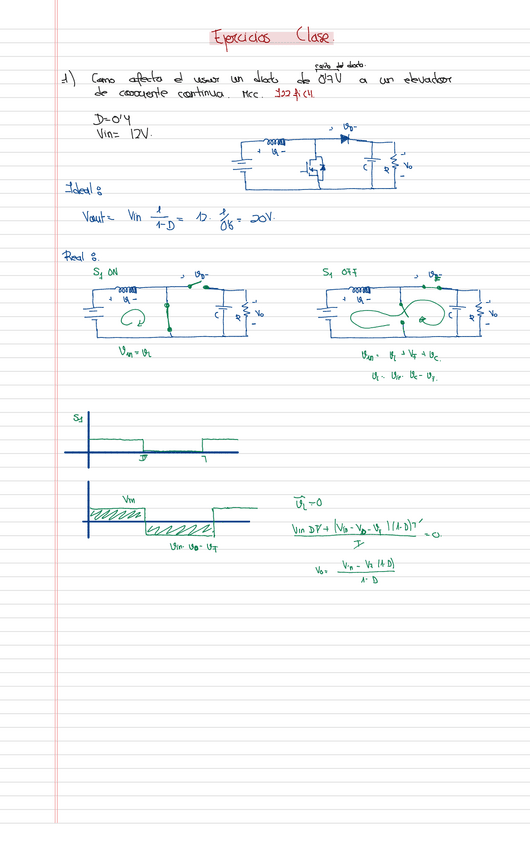 Ejercicios Clase.
caida del diodo.
1) Como afecta el usar un diodo de 0'7V a un elevador
de corriente continua. MCC.
D=0'4
Vin= 12V.
+ VL - VD- C R Vo
Ideal:
Vout= Vin 1/1-D = 12. 1/0'6 = 20V.
Real:
S1 ON
+ VL - VD- C R Vo
Vin = VL
S1 OFF
+ VL - C R Vo
Vin = VL + VF + VC.
VL = Vin - VC - VF.
S1
D T
Vin
Vin - VO - VF
VL=0
Vin DT + (Vin - VO - VF)(1-D)T / T = 0
Vo= Vin - VF (1-D) / 1-D